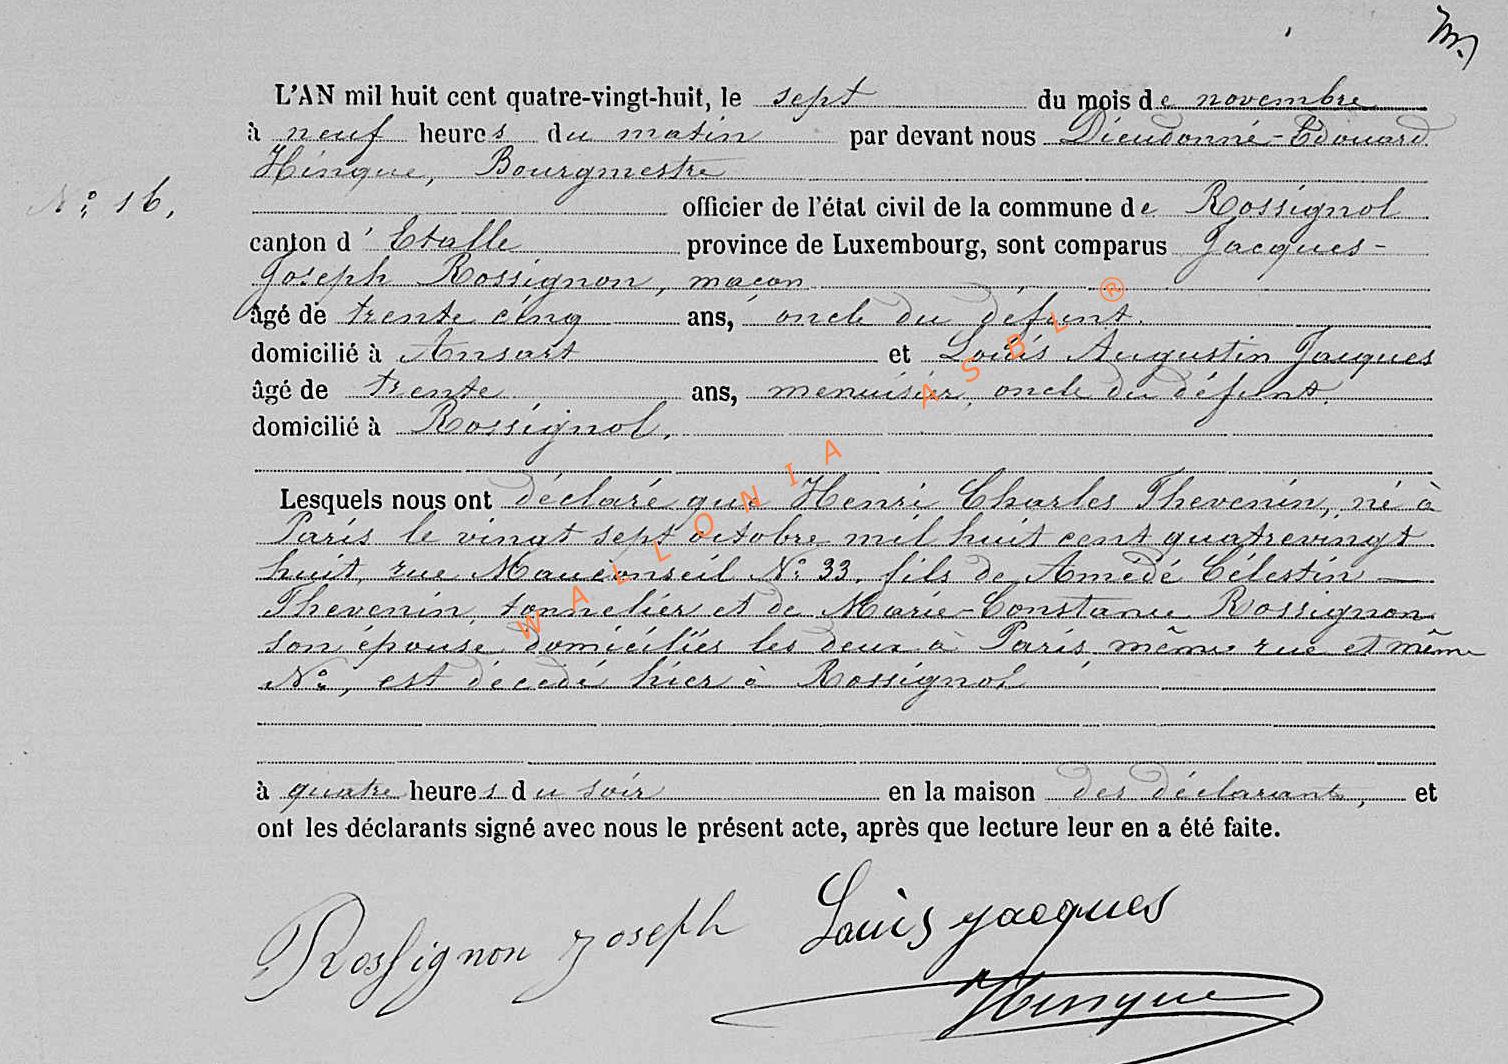 L'AN mil huit cent quatre-vingt-huit, le sept du mois de novembre
à neuf heures du matin par devant nous Dieudonné-Edouard
Hinque, Bourgmestre
N° 16.
officier de l'état civil de la commune de Rossignol
canton d'Etalle province de Luxembourg, sont comparus Jacques-
Joseph Rossignon, maçon
âgé de trente cinq ans, oncle du défunt.
domicilié à Ansart et Louis Augustin Jacques
âgé de trente ans, menuisier, oncle du défunt.
domicilié à Rossignol.
Lesquels nous ont déclaré que Henri Charles Thevenin, né à
Paris le vingt sept octobre mil huit cent quatrevingt
huit, rue Mauconseil N° 33, fils de Amédé Célestin
Thevenin, tonnelier et de Marie-Constance Rossignon
son épouse, domiciliés les deux à Paris même rue et même
N°, est décédé hier à Rossignol
à quatre heures du soir en la maison des déclarants, et
ont les déclarants signé avec nous le présent acte, après que lecture leur en a été faite.
Rossignon Joseph Louis Jacques
Hinque
WALLONIA ASBL ®